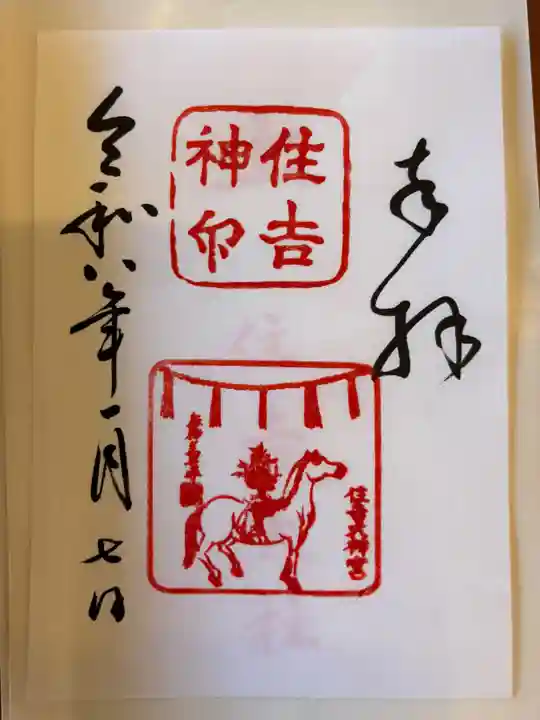 奉拝
住吉
神印
住吉大神宮
令和八年一月七日